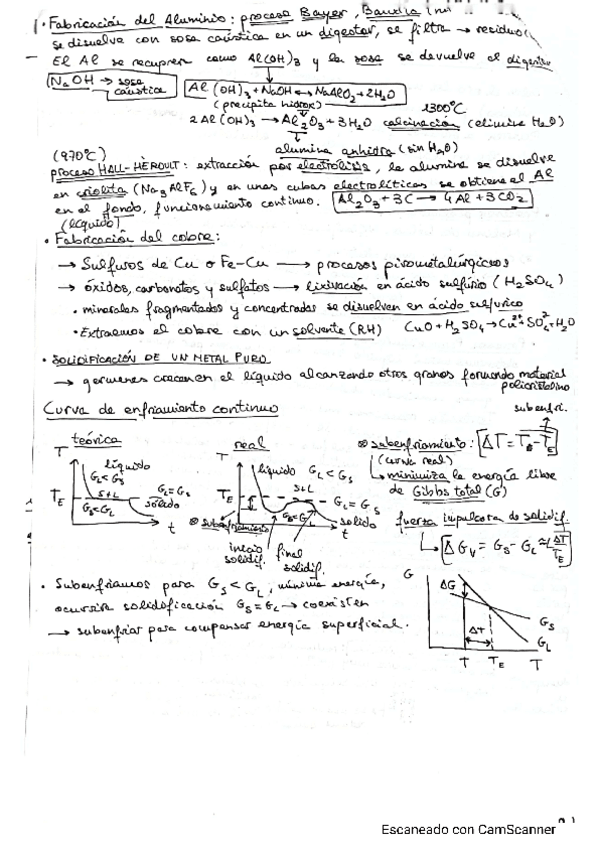 · Fabricación del Aluminio: proceso Bayer, Bauxita
se disuelve con sosa caústica en un digestor, se filtra → residuos
El Al se recupera como Al(OH)3 y la sosa se devuelve al digestor
NaOH → sosa caústica
Al(OH)3 + NaOH ↔ NaAlO2 + 2H2O
(precipita hidrox)
1300ºC
2Al(OH)3 → Al2O3 + 3H2O calcinación (elimina H2O)
alumina anhidra (sin H2O)
(970ºC)
proceso HALL-HÈROULT: extracción por electrolisis, la alumina se disuelve
en criolita (Na3AlF6) y en unas cubas electrolíticas se obtiene el Al
en el fondo, funcionamiento continuo. Al2O3 + 3C → 4Al + 3CO2
(líquido)
· Fabricación del cobre:
→ Sulfuros de Cu o Fe-Cu → procesos pirometalúrgicos
→ óxidos, carbonatos y sulfatos → lixiviación en ácido sulfúrio (H2SO4)
· minerales fragmentados y concentrados se disuelven en ácido sulfurico
· Extraemos el cobre con un solvente (RH) CuO + H2SO4 → Cu2+ SO42- + H2O
· SOLIDIFICACIÓN DE UN METAL PURO
→ germenes crecen en el líquido alcanzando otros granos formando material
policristalino
Curva de enfriamiento continuo
subenfri.
teórica
real
⊗ subenfriamiento: ΔT = TE - TE
(curva real)
minimiza la energía libre
de Gibbs total (G)
T
líquido
GL < GS
TE
S+L
GL = GS
GS < GL
sólido
t
T
líquido GL < GS
TE
S+L
GL = GS
GS < GL
⊗ subenfriamiento
solido
t
inicio solidif.
final solidif.
fuerza impulsora de solidif.
ΔGV = GS - GL ≈ L ΔT/TE
· Subenfriamos para GS < GL, mínima energía,
ocurrira solidificación GS = GL → coexisten
→ subenfriar para compensar energía superficial.
G
ΔG
ΔT
GS
GL
T TE T
Escaneado con CamScanner